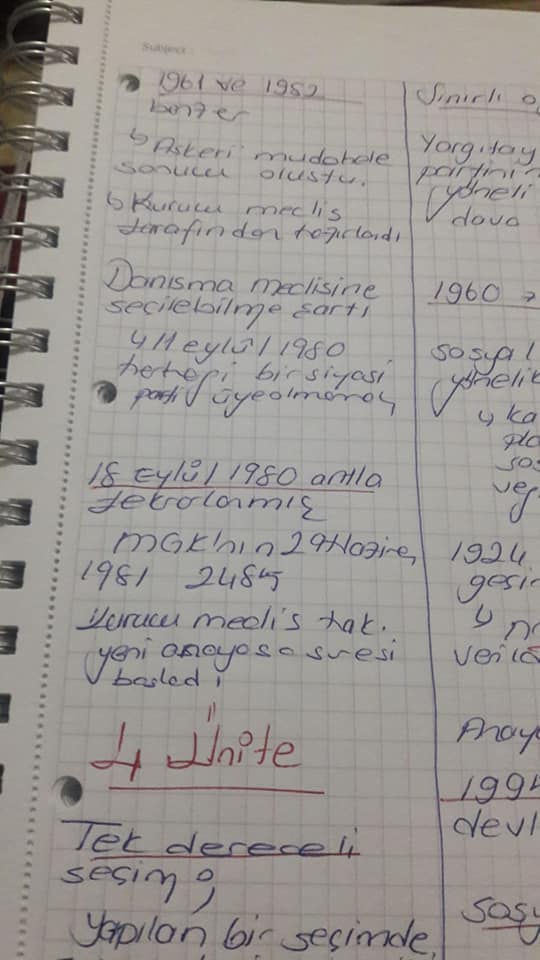 Subject :
1961 ve 1952
benzer
↳ Askeri mudahele
sonucu oluştu.
↳ Kurucu meclis
tarafından hazırlandı
Danışma meclisine
seçilebilme şartı
↳ 11 eylül 1980
herhangi bir siyasi
parti üye olmamak
18 Eylül 1980 antla
tekrarlamış
MGK'nın 29 Haziran
1981 2485
Kurucu meclis hak.
yeni anayasa süresi
başladı
4 Ünite
Tek dereceli
seçim;
Yapılan bir seçimde,
Sınırlı o
Yargıtay
partinin
yöneli
dava
1960 →
sosyal
yönelik
↳ ka
pla
sos
ve
1924
geçi
↳
verile
Anay
1994
devl
sosy